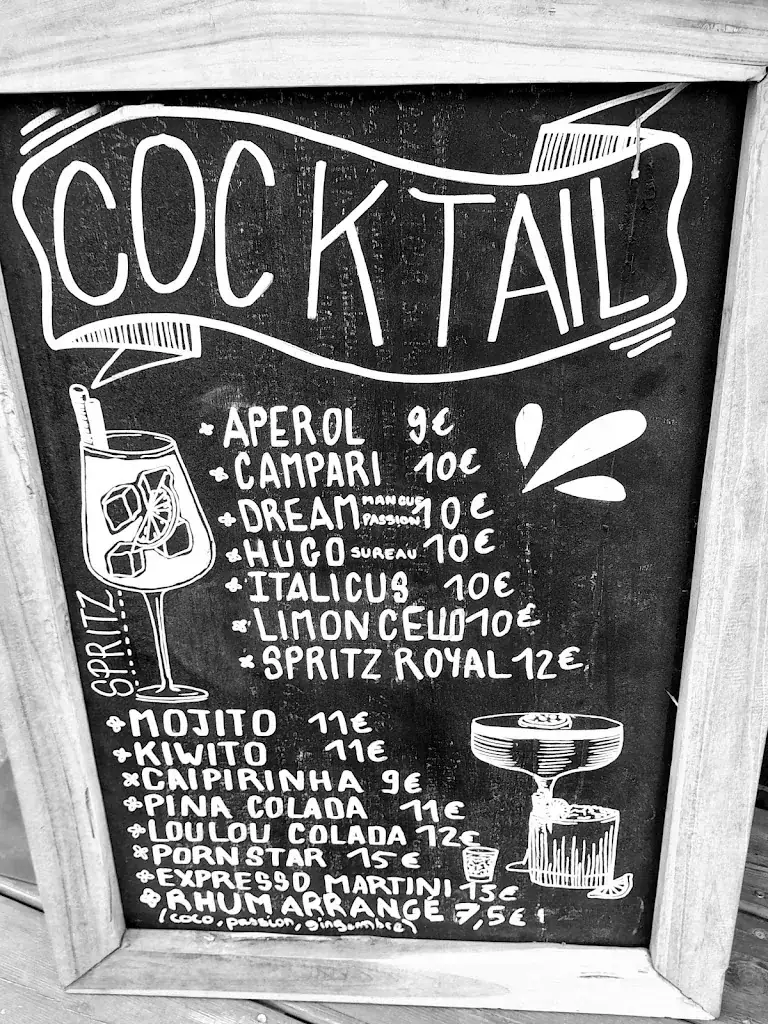 COCKTAIL
SPRITZ
APEROL 9€
CAMPARI 10€
DREAM MANGUE PASSION 10€
HUGO SUREAU 10€
ITALICUS 10€
LIMONCELLO 10€
SPRITZ ROYAL 12€
MOJITO 11€
KIWITO 11€
CAIPIRINHA 9€
PINA COLADA 11€
LOULOU COLADA 12€
PORNSTAR 15€
EXPRESSO MARTINI 13€
RHUM ARRANGÉ 7,5€
(coco, passion, gingembre)